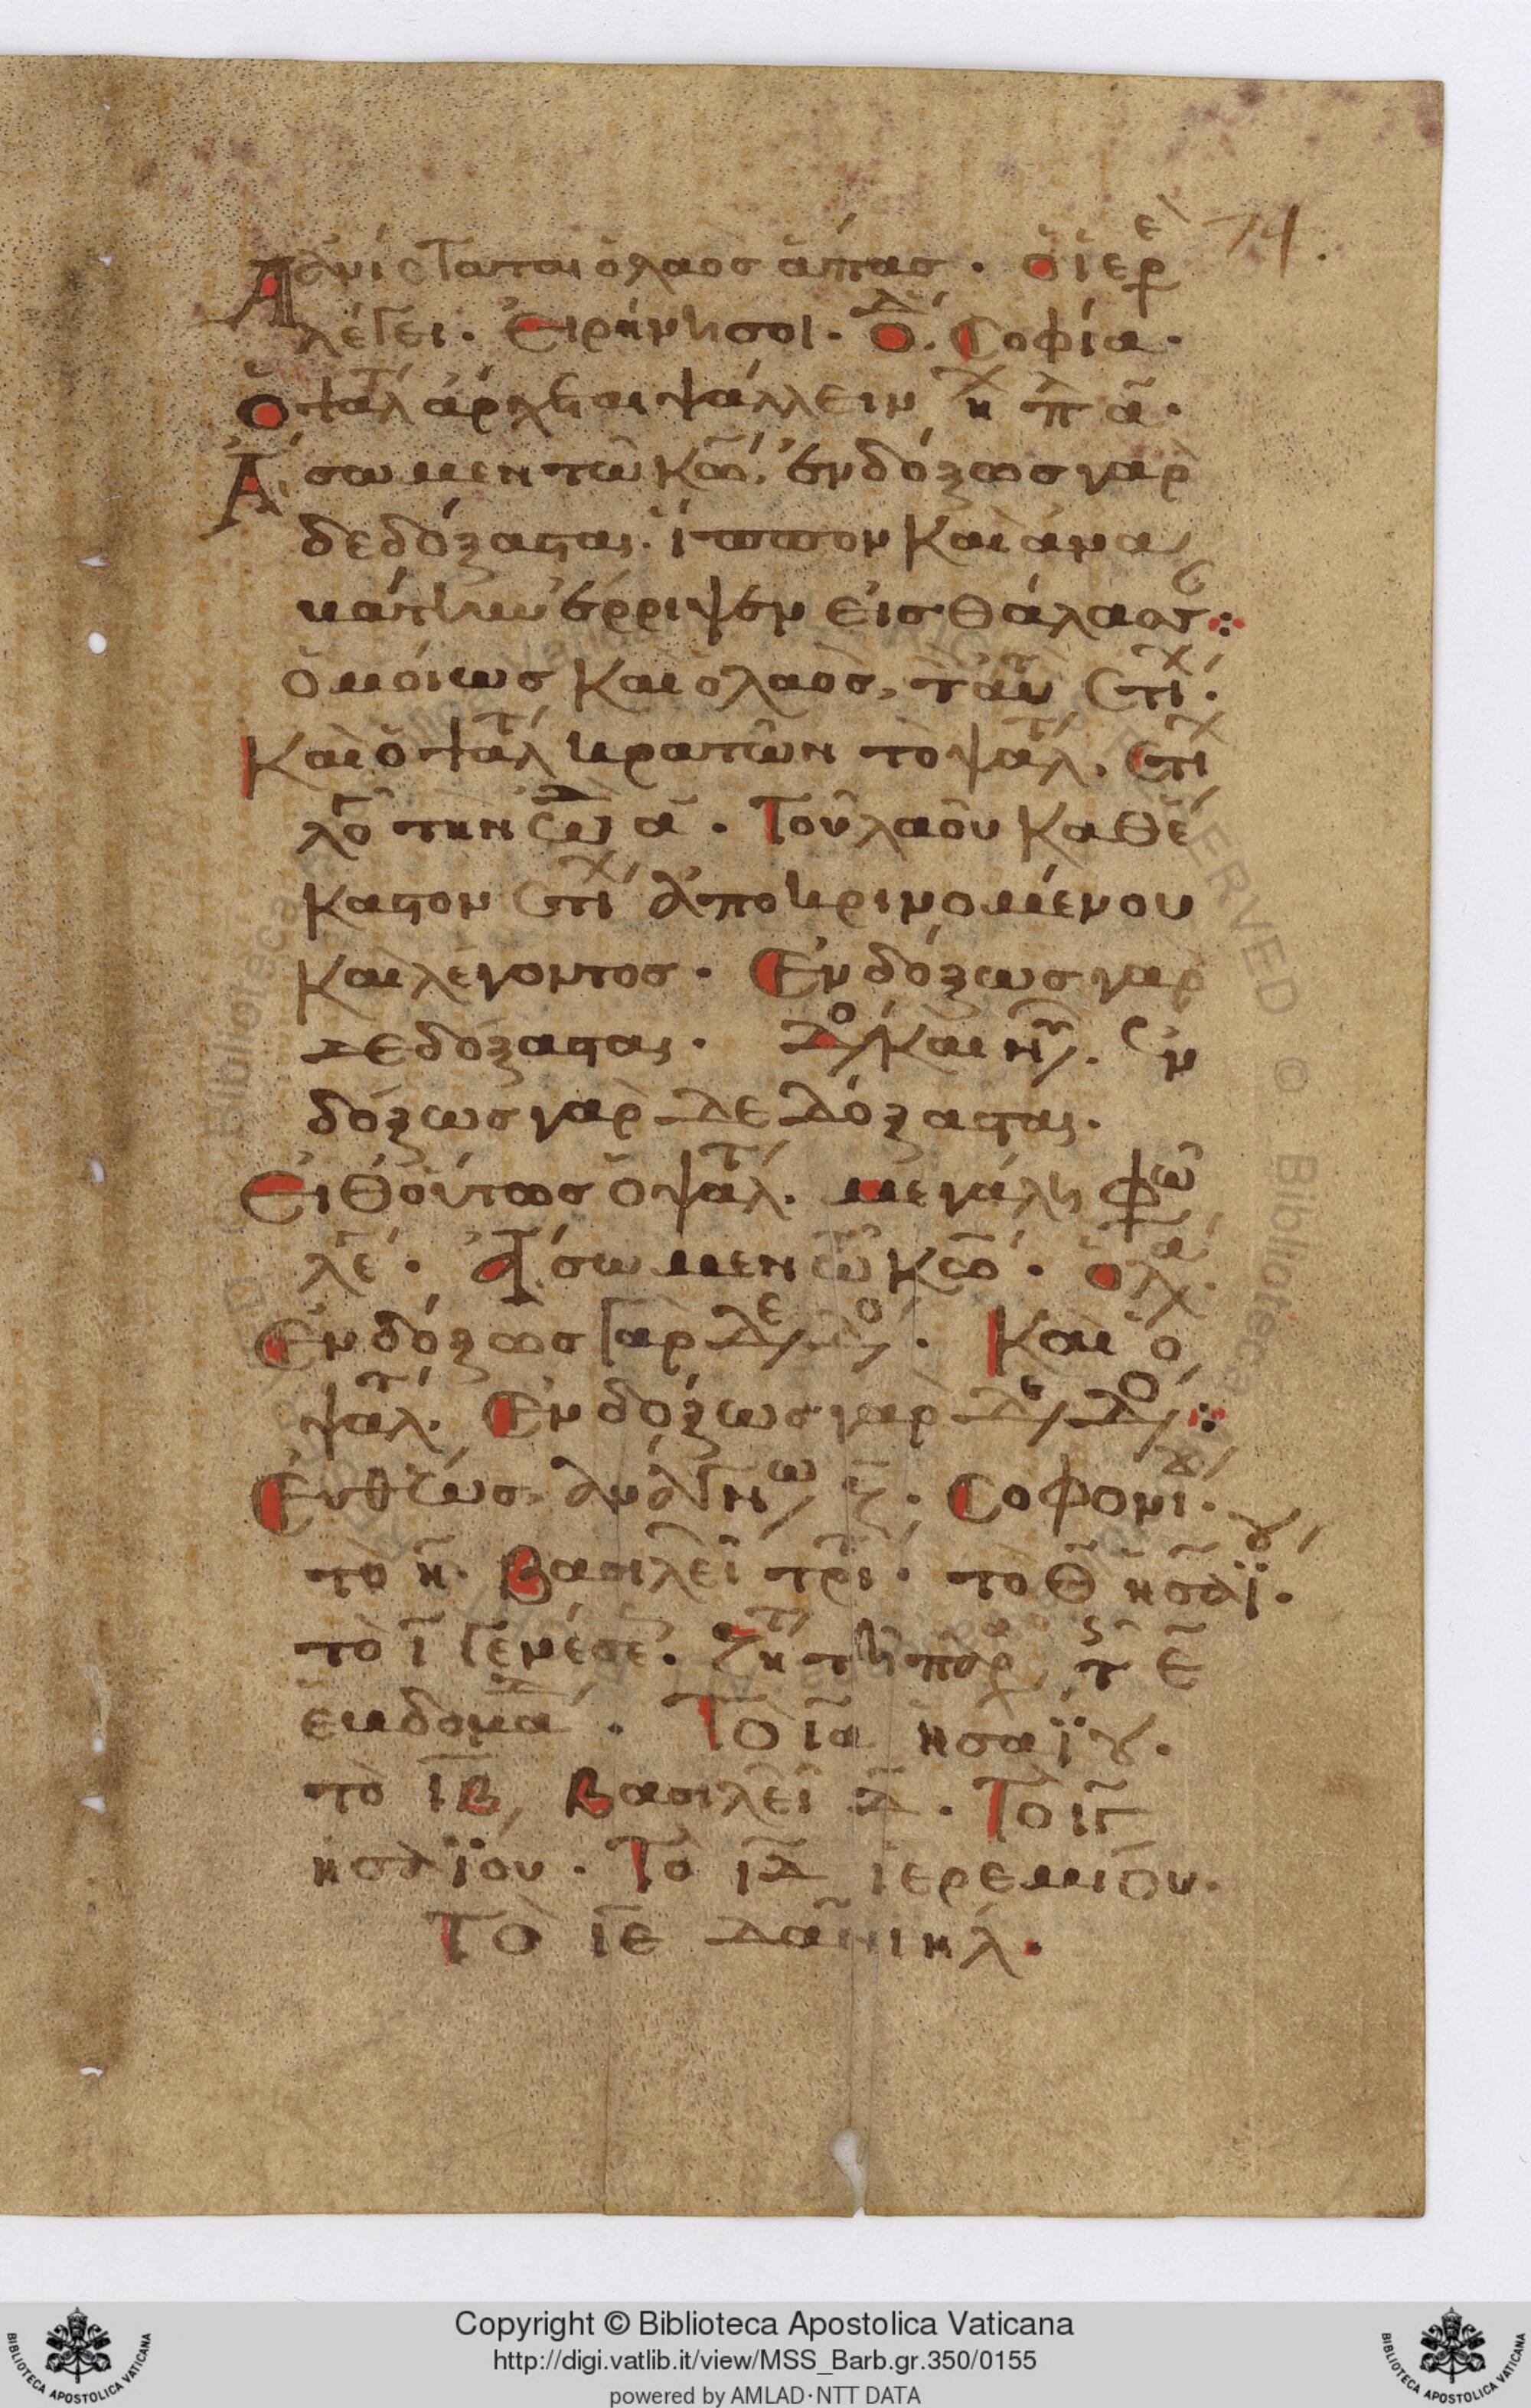 74.
Ἀνίσταται ὁ λαὸς ἅπας · ὁ ἱερε
λέγει · Εἰρήνη σοι · ὁ Δ. Σοφία ·
ὁ ψαλτ ἄρχεται ψάλλειν ἠχ πλ α ·
Ἄσωμεν τῶ κῶ, ἐνδόξως γὰρ
δεδόξασται. ἵππον καὶ ἀνα
βάτην ἔρριψεν εἰς θάλασσ :
ὁμοίως καὶ ὁ λαὸς, τὸν αὐτ στίχ ·
Καὶ ὁ ψάλτ κρατῶν τὸ ψαλτ, στιχ
λο τὴν ὠδ α · Τοῦ λαοῦ καθ ἕ
καστον στίχ ἀποκρινομένου
καὶ λέγοντος · Ἐνδόξως γὰρ
δεδόξασται · Δο καὶ νῦ. Ἐν
δόξως γὰρ δεδόξασται.
Εἰθ οὕτως ὁ ψάλτ. μεγάλη φω
λέ · Ἄσωμεν τῶ κῶ · ὁ λα
Ἐνδόξως γὰρ δε δο · Καὶ ὁ
ψάλτ. Ἐνδόξως γὰρ δε δο :
Εὐθέως, ἀνάγνω ζ · Σοφονί ·
τὸ η · Βασιλει τρι · τὸ θ ησαϊου ·
τὸ ι Γενέσε · ζητ τῆ παρ τ ε
ἑβδομάδ · Τὸ ια ησαΐου.
τὸ ιβ, Βασιλει δ · Τὸ ιγ
ησαΐου · Τὸ ιδ ἱερεμίου ·
Τὸ ιε δανιήλ ·
Copyright © Biblioteca Apostolica Vaticana
http://digi.vatlib.it/view/MSS_Barb.gr.350/0155
powered by AMLAD·NTT DATA
BIBLIOTECA APOSTOLICA VATICANA
BIBLIOTECA APOSTOLICA VATICANA